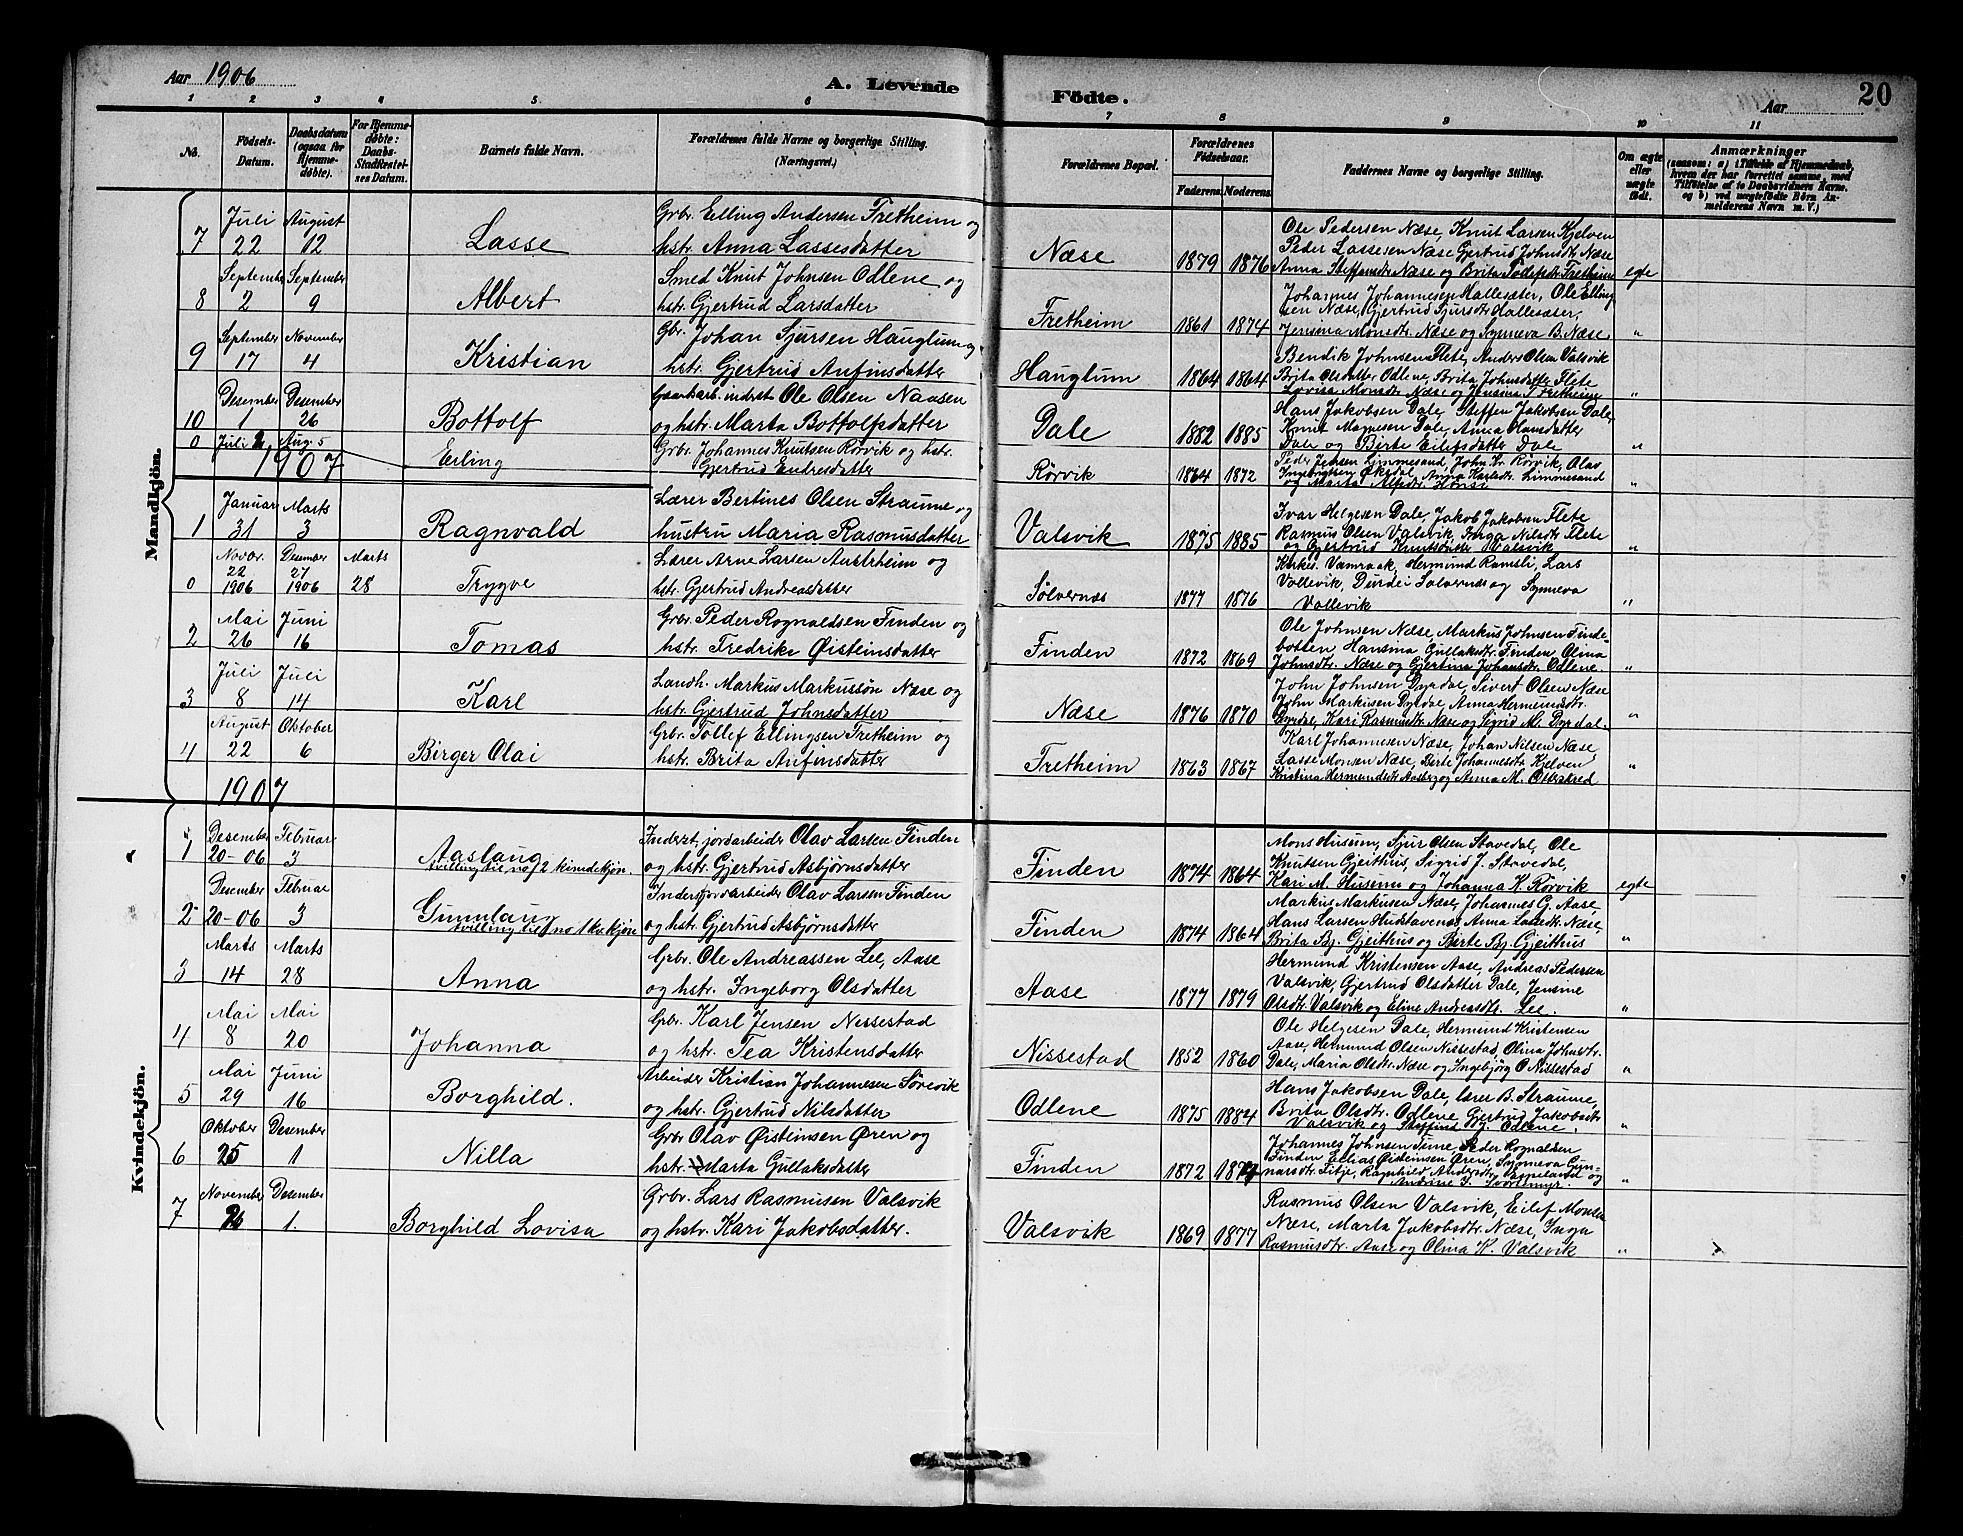 Aar 1906
A. Levende Födte.
Aar
20
1 2 3 4 5. 6 7 8 9 10 11
No. Födsels-Datum. Daabsdatum (ogsaa for Hjemme-døbte). For Hjemme-døbte: Daabs-Stadfæstel-ses Datum. Barnets fulde Navn. Forældrenes fulde Navne og borgerlige Stilling. (Næringsvei.) Forældrenes Bopæl. Forældrenes Födselsaar. Faderens. Moderens. Faddernes Navne og borgerlige Stilling. Om ægte eller uægte født. Anmærkninger
(saasom: a) i Tilfælde af Hjemmedaab, hvem der har forrettet samme, med Tilføielse af to Daabsvidners Navne. og b) ved uægtefødte Børn An-melderens Navn m. V.)
Mandkjön.
7 Juli 22 August 12 Lasse Grbr. Elling Andersen Fretheim og
hstr. Anna Lassesdatter Næse 1879 1876
Ole Pedersen Næse, Knut Larsen Kjelven
Peder Lassesen Næse Gjertrud Johnsdtr. Næse
Anna Steffensdtr. Næse og Brita Fretheim egte
8 September 2 September 9 Albert Smed Knut Johnsen Odlene og
hstr. Gjertrud Larsdatter Fretheim 1861 1874
Johannes Johannesen Hallesæter, Ole Elling
sen Næse, Gjertrud Sjursdtr. Hallesæter,
Jensina Monsdtr. Næse og Synneva B. Næse. "
9 September 17 November 4 Kristian Gbr. Johan Sjursen Hauglum og
hstr. Gjertrud Anfinsdatter Hauglum 1864 1864
Bendik Johnsen Flete, Anders Olsen Valsvik
Brita Olsdatter Odlene, Brita Johnsdatter Flete
Lovisa Monsdtr. Næse og Jensina Fretheim "
10 Desember 1 Desember 26 Bottolf Gaardarb. inderst Ole Olsen Naasen
og hstr. Marta Bottolfsdatter Dale 1882 1885
Hans Jakobsen Dale, Steffen Jakobsen Dale,
Knut Magnesen Dale, Anna Hansdatter
Dale og Birte Eilefsdatter Dale "
0 Juli 2 Aug. 5 Erling Grbr. Johannes Knutsen Rörvik og hstr.
Gjertrud Endresdatter Rörvik 1864 1872
Peder Jensen Limmesand, John Kr. Rörvik, Olav
Ingebrigtsen Öksdal, Anna Karlsdtr. Limmesand
og Marta Alfsdtr. "
1907
1 Januar 31 Marts 3 Ragnvald Lærer Bertines Olsen Straume og
hustru Maria Rasmusdatter Valsvik 1875 1885
Ivar Helgesen Dale, Jakob Jakobsen Flete
Rasmus Olsen Valsvik, Inga Nilsdtr. Flete
og Gjertrud Knutsdatter Valsvik "
0 Novbr. 22 1906 Desember 27 1906 Marts 28 Trygve Lærer Arne Larsen Austrheim og
hstr. Gjertrud Andreasdatter Sölvernæs 1877 1876
Kirkes. Vamraak, Hermund Ramsli, Lars
Vollevik, Durdei Sölvernæs og Synneva
Vollevik "
2 Mai 26 Juni 16 Tomas Grbr. Peder Rognaldsen Finden og
hstr. Fredrike Øisteinsdatter Finden 1872 1869
Ole Johnsen Næse, Markus Johnsen Finde-
botten Hansina Gullaksdtr. Finden, Olina
Johnsdtr. Næse og Gjertina Johansdtr. Odlene. "
3 Juli 8 Juli 14 Karl Landh. Markus Markussön Næse og
hstr. Gjertrud Johnsdatter Næse 1876 1870
John Johnsen Dyrdal, Sivert Olsen Næse
John Markusen Dyrdal, Anna Hermunsdtr.
Dyrdal, Kari Rasmusdtr. Næse og Sigrid M. Dyrdal. "
4 August 22 Oktober 6 Birger Olai Grbr. Tollef Ellingsen Fretheim og
hstr. Brita Anfinsdatter Fretheim 1863 1867
Karl Johannesen Næse, Johan Nilsen Næse
Lasse Monsen Næse, Birte Johannesdtr. Kjelven
Kristina Hermundsdtr. Aaberg og Anna M. Otterskred "
1907
Kvindekjön.
1 Desember 20-06 Februar 3 Aaslaug
tvilling til no 2 kvindekjøn.
Inderst, jordarbeider Olav Larsen Finden
og hstr. Gjertrud Asbjørnsdatter Finden 1874 1864
Mons Husum, Sjur Olsen Stavedal, Ole
Knutsen Gjeithus, Sigrid J. Stavedal,
Kari M. Husum og Johanna K. Rörvik egte
2 Desember 20-06 Februar 3 Gunnlaug
tvilling til no 1 kv. kjön
Inderst jordarbeider Olav Larsen Finden
og hstr. Gjertrud Asbjørnsdatter Finden 1874 1864
Markus Markusen Næse, Johannes G. Aase,
Hans Larsen Huslavenæs Anna Lassedtr. Næse,
Brita Bj. Gjeithus og Birte Bj. Gjeithus "
3 Marts 14 Marts 28 Anna Grbr. Ole Andreassen Lee, Aase
og hstr. Ingeborg Olsdatter Aase 1877 1879
Hermund Kristensen Aase, Andreas Pedersen
Valsvik, Gjertrud Olsdatter Dale, Jensine
Olsdtr. Valsvik og Eline Andreasdtr. Lee. "
4 Mai 8 Mai 20 Johanna Grbr. Karl Jensen Nissestad
og hstr. Tea Kristensdatter Nissestad 1852 1860
Ole Helgesen Dale, Hermund Kristensen
Aase, Hermund Olsen Nissestad, Olina Johnsdtr.
Dale, Maria Olsdtr. Næse og Ingebjörg O Nissestad "
5 Mai 29 Juni 16 Borghild. Arbeider Kristian Johannesen Sörevik
og hstr. Gjertrud Nilsdatter Odlene 1875 1884
Hans Jakobsen Dale, lærer B. Straume,
Brita Olsdtr. Odlene, Gjertrud Jakobsdtr
Valsvik og J. Odlene. "
6 Oktober 25 Desember 1 Nilla Grbr Olav Øisteinsen Øren og
hstr. Marta Gullaksdatter Finden 1872 1874
Johannes Johnsen Peder Rognaldsen
Finden Elias Øisteinsen Øren, Synneva Gun-
narsdtr. Fitje, Ragnhild Andersdtr. og
Andrine J. Svortemyr "
7 November 26 Desember 1. Borghild Lovisa Grbr. Lars Rasmusen Valsvik
og hstr. Kari Jakobsdatter. Valsvik 1869 1877
Rasmus Olsen Valsvik, Eilef Monsen
Næse, Marta Jakobsdtr. Næse, Inga
Rasmusdtr. Aase og Olina K. Valsvik "